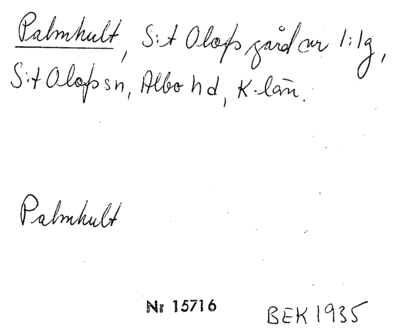 Palmhult, S:t Olofs gård nr 1:19,
S:t Olofs sn, Albo hd, K-län.
Palmhult
Nr 15716
BEK 1935